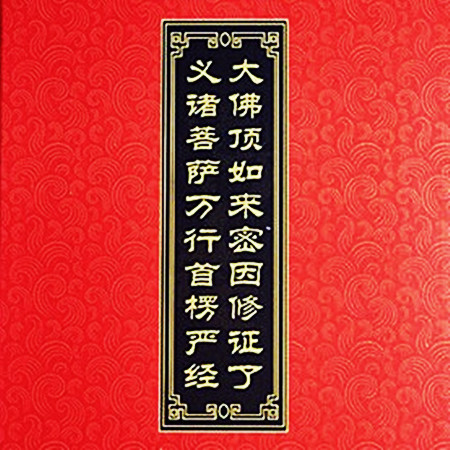 大佛顶如来密因修证了
义诸菩萨万行首楞严经